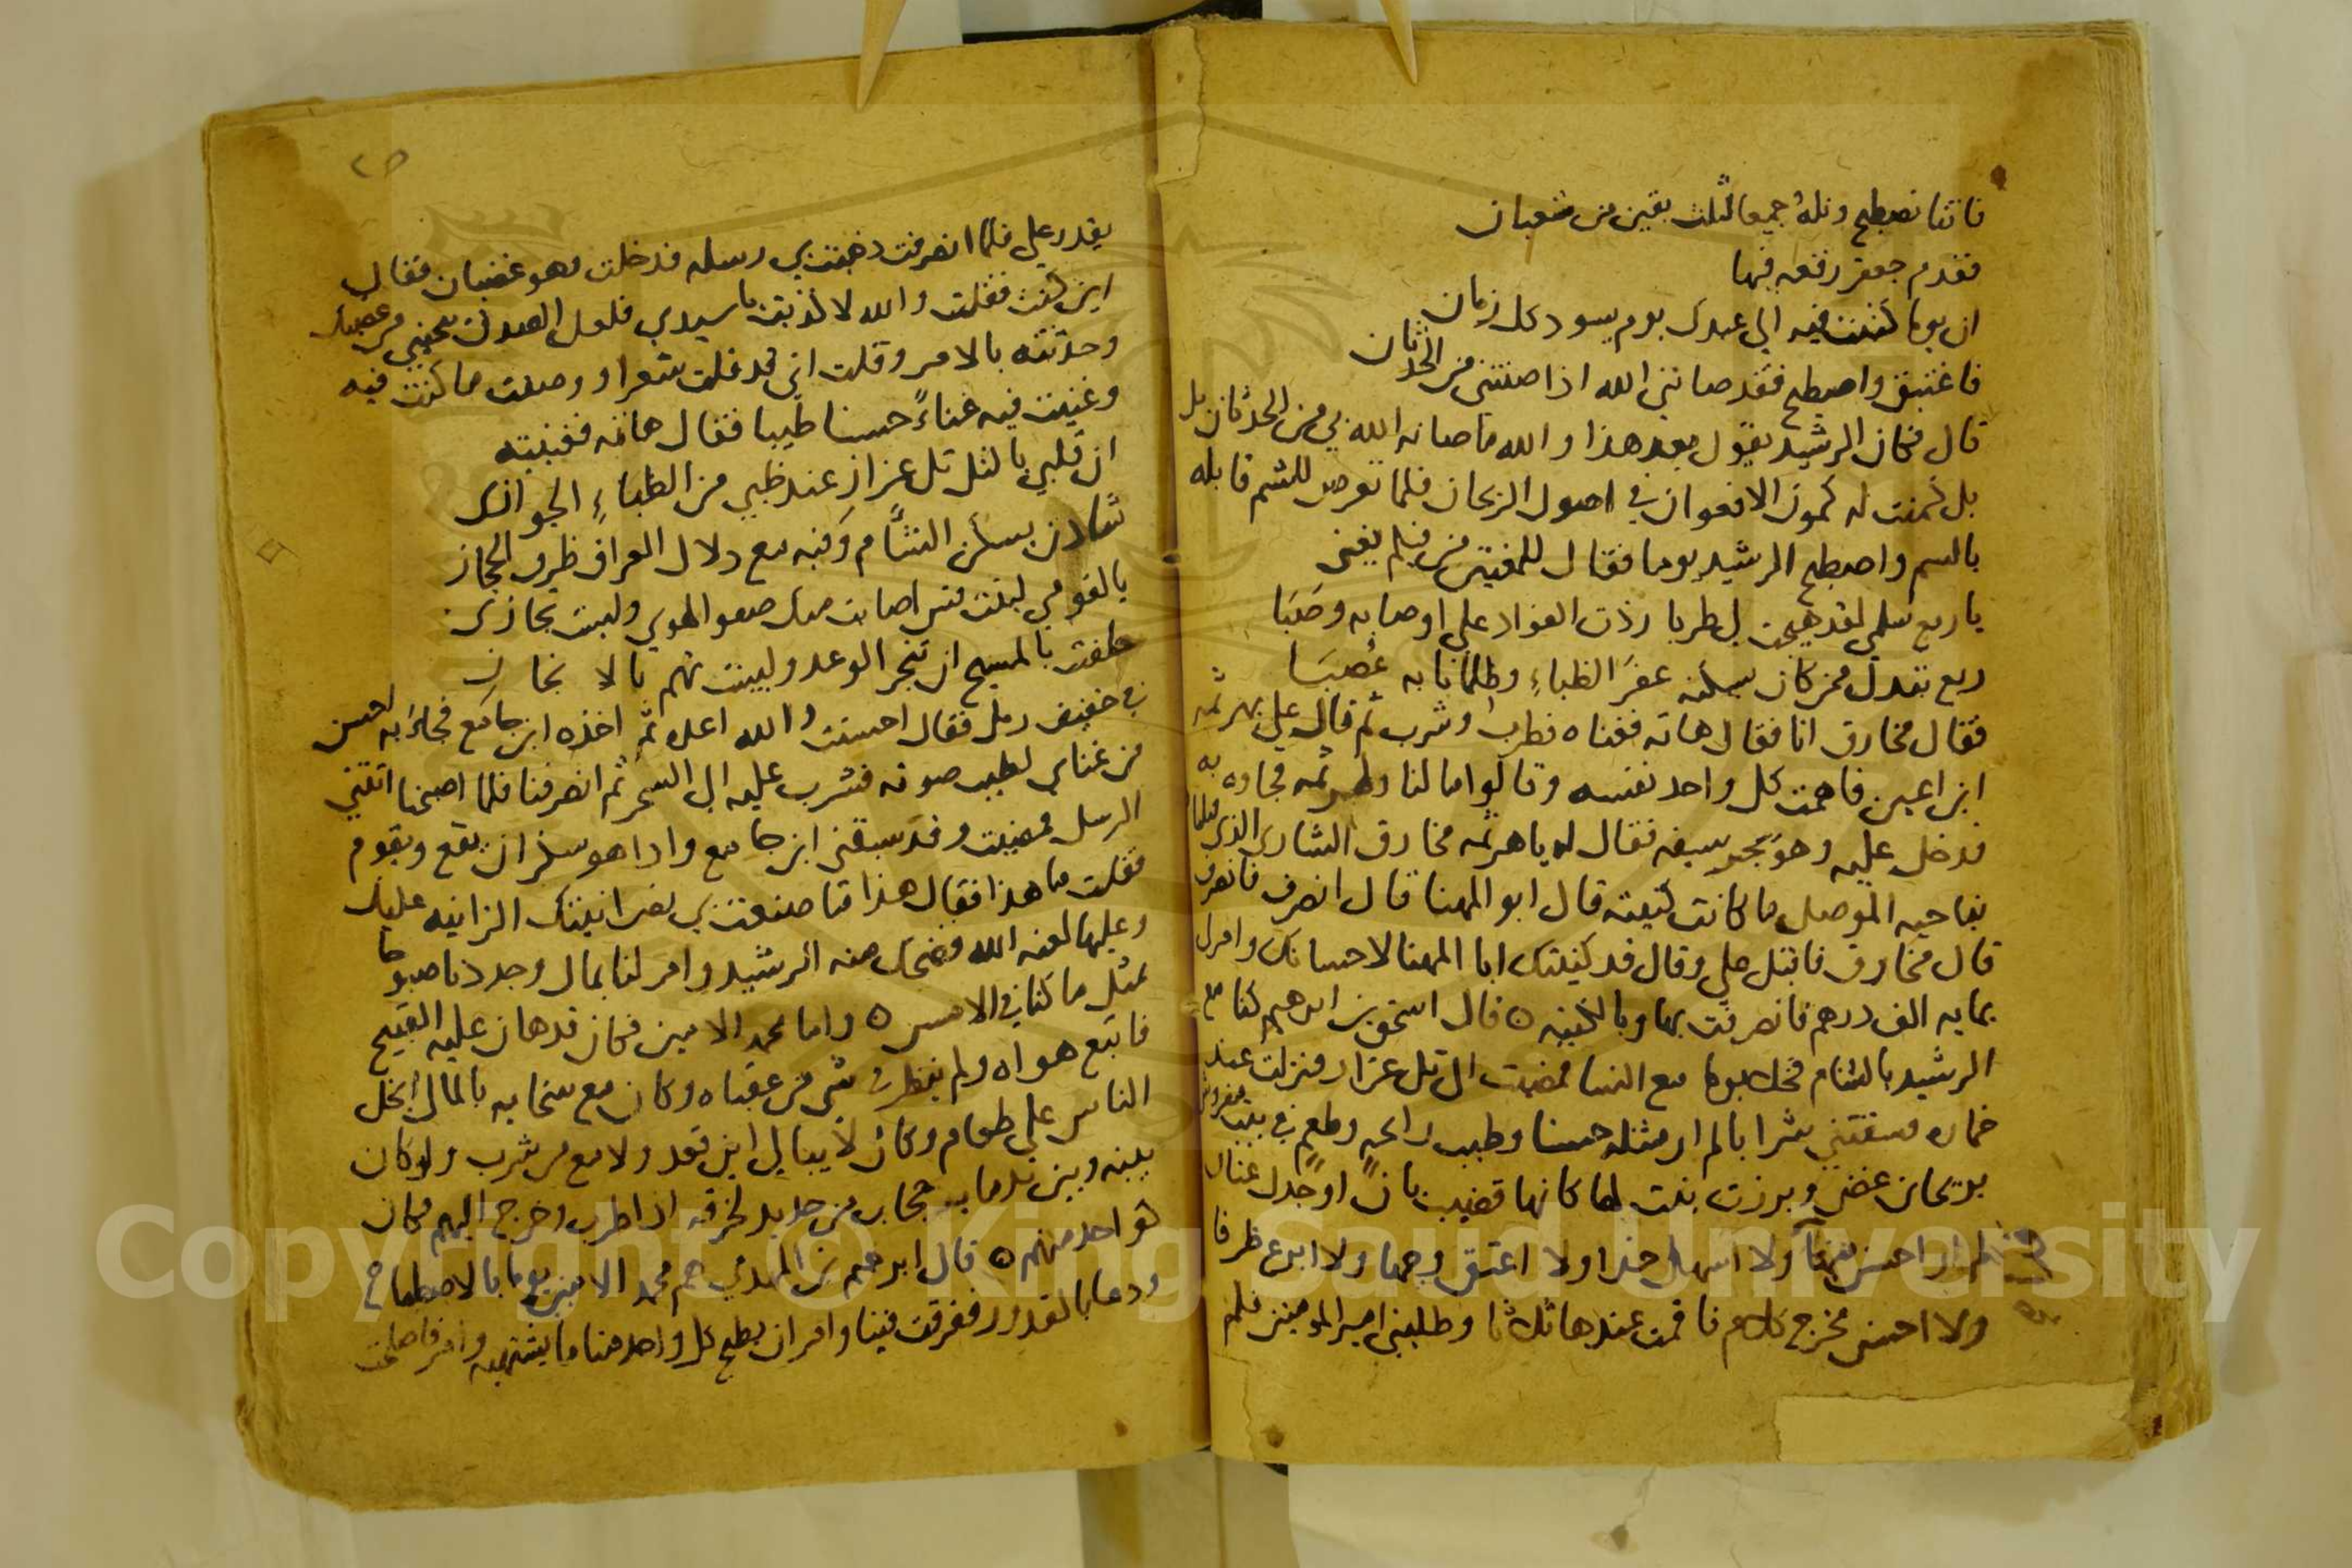 فاتنا نصطبح ونله جميعا لثلث بقين من شعبان
فقدم جعفر رقعه فيها
ان يوما كتبت فيه الي عبدك يوم يسود كل زمان
فاغتبق واصطبح فقد صانني الله اذا صنتني من الحدثان
قال فكان الرشيد يقول بعد هذا والله ما صانه الله بي من الحدثان بل
بل كمنت له كمون الافعوان في اصول الريحان فلما تعرض للشم قابله
بالسم واصطبح الرشيد يوما فقال للمغنين من فيكم يغني
يا ربع سلمي لقد هيجت لي طربا زدت الفواد علي اوصابه وصبا
ربع تبدل ممن كان يسكنه عفر الظباء وظلمانا به عصبا
فقال مخارق انا فقال هاته فغناه فطرب وشرب ثم قال علي بهرثمه
ابن اعين فاهمت كل واحد نفسه وقالوا ما لنا ولهرثمه فجاوه به
فدخل عليه وهو يجر سيفه فقال له يا هرثمه مخارق الشاري الذي قتلناه
بناحيه الموصل ما كانت كنيته قال ابو المهنا قال انصرف فانصرف
قال مخارق فاقبل علي وقال قد كنيتك ابا المهنا لاحسانك وامر لي
بمايه الف درهم فانصرفت بها وبالكنيه ه قال اسحق بن ابرهيم كنا مع
الرشيد بالشام فخلا يوما مع النسا فمضيت الي تل عزاز فنزلت عند
خماره فسقتني شرابا لم ار مثله حسنا وطيب رائحه وطعم في بيت مفروش
بريحان غض وبرزت بنت لها كانها قضيب بان او جدل عنان
لم ار احسن منها ولا اسهل خدا ولا اعتق وجها ولا ابرع ظرفا
ولا احسن مخرج كلام فاقمت عندها ثلاثا وطلبني امير المومنين فلم
يقدر علي فلما انصرفت ذهبت بي رسله فدخلت وهو غضبان فقال
اين كنت فقلت والله لا كذبت يا سيدي فلعل الصدق ينجيني من غضبك
وحدثته بالامر وقلت اني قد قلت شعرا ووصفت ما كنت فيه
وغنيت فيه غناءً حسنا طيبا فقال هاته فغنيته
ان قلبي بالتل تل عزاز عند ظبي من الظباءِ الجوازي
شادن يسكن الشام وفيه مع دلال العراق ظرف الحجاز
يا لقومي لبنت قس اصابت منك صفو الهوي وليست تجازي
حلفت بالمسيح ان تنجز الوعد وليست تهم بالانجاز
في خفيف رمل فقال احسنت والله اعده ثم اخذه ابن جامع فجاء به احسن
من غناي لطيب صوته فشرب عليه الي السحر ثم انصرفنا فلما اصبحنا اتتني
الرسل فمضيت وقد سبقني ابن جامع واذا هو سكران يقع ويقوم
فقلت ما هذا فقال هذا ما صنعت بي نصرانيتك الزانيه عليك
وعليها لعنه الله فضحك منه الرشيد وامر لنا بمال وجددنا صبوحا
بمثل ما كنا في الامس ه واما محمد الامين فكان قد هان عليه القبيح
فاتبع هواه ولم ينظر في شي من عقباه وكان مع سخايه بالمال ابخل
الناس علي طعام وكان لا يبالي اين قعد ولا مع من شرب ولو كان
بينه وبين ندمايه حجاب من حديد لخرقه اذا طرب وخرج اليهم فكان
هو احد منهم ه قال ابرهيم بن المهدي هم محمد الامين يوما بالاصطباح
ودعا بالقدور ففرقت فينا وامر ان يطبخ كل واحد منا ما يشتهيه وامر فاصلحت
Copyright © King Saud University